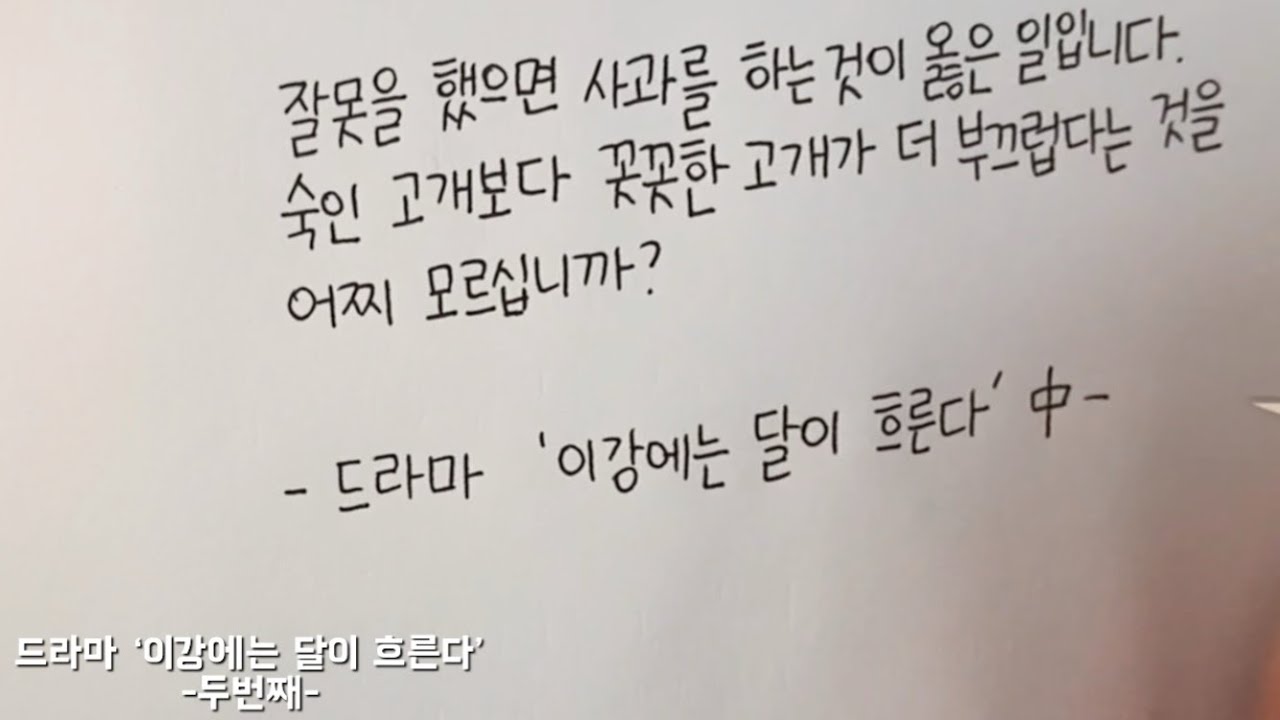 잘못을 했으면 사과를 하는것이 옳은 일입니다.
숙인 고개보다 꼿꼿한 고개가 더 부끄럽다는 것을
어찌 모르십니까?
- 드라마 '이강에는 달이 흐른다' 中-
드라마 '이강에는 달이 흐른다'
-두번째-